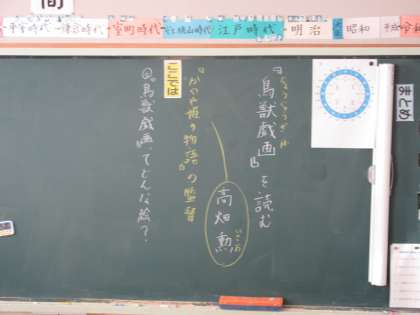 間
平安時代
鎌倉時代
室町時代
安土桃山時代
江戸時代
明治
大正
昭和
平成
まとめ
ちょうじゅうぎが
『鳥獣戯画』を読む
高畑勲
いさお
『かぐや姫の物語』の監督
ここでは
◎『鳥獣戯画』てどんな絵？